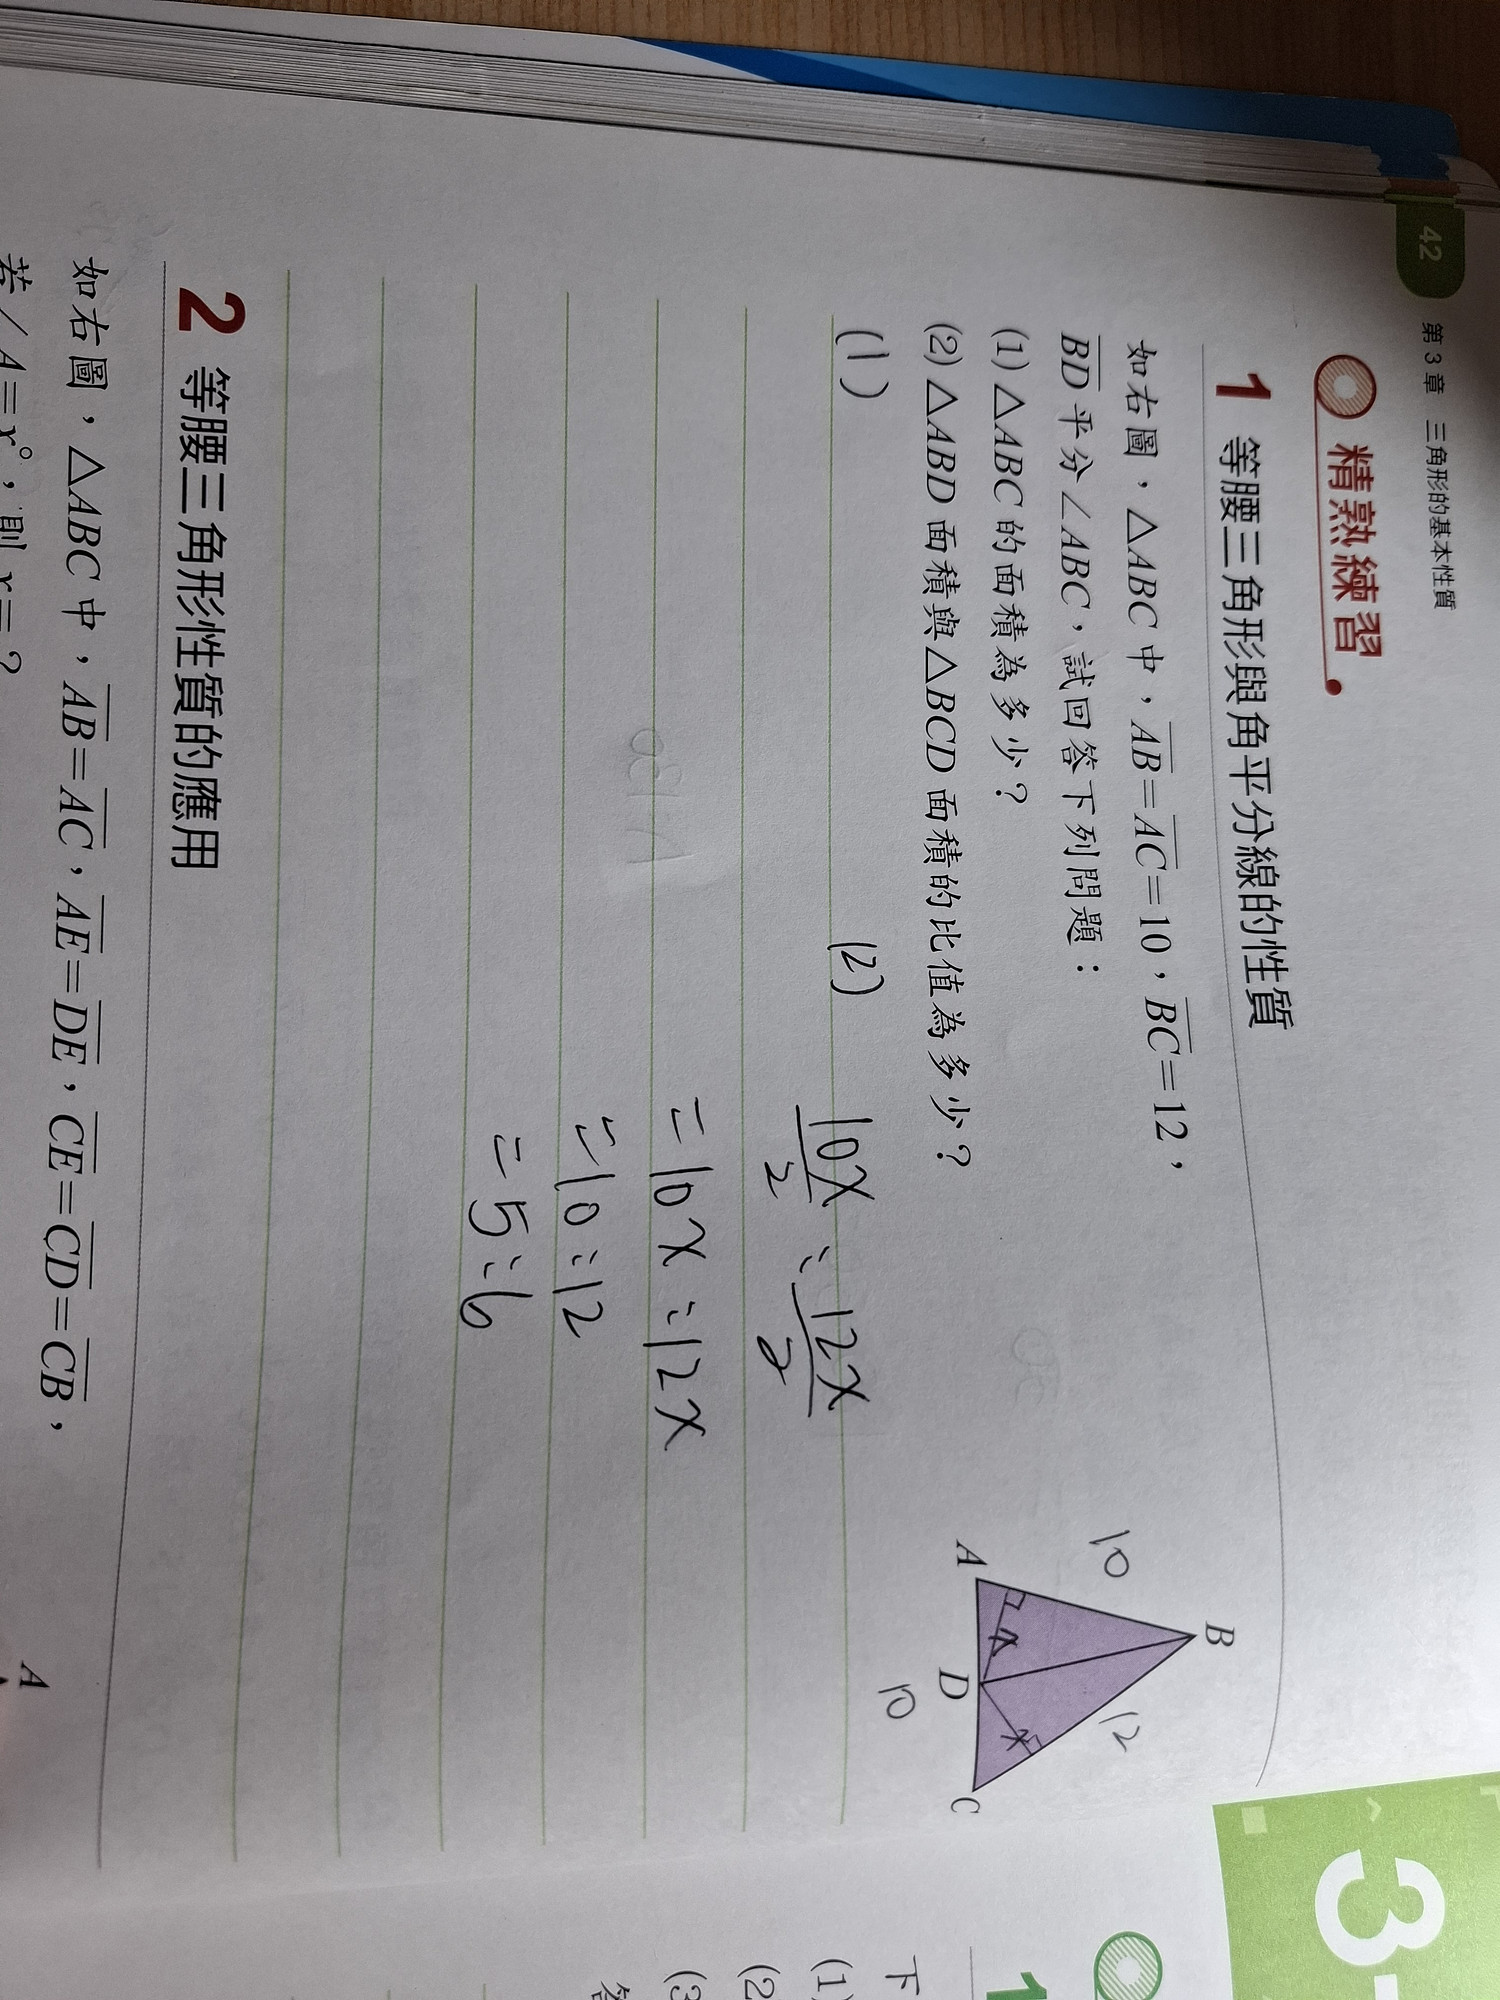 42 第3章 三角形的基本性質
精熟練習
1 等腰三角形與角平分線的性質
如右圖，△ABC中，AB=AC=10，BC=12，
BD平分∠ABC，試回答下列問題：
(1) △ABC的面積為多少？
(2) △ABD面積與△BCD面積的比值為多少？
B
10
12
A
x
D
x
C
10
(1)
(2)
10x/2 : 12x/2
=10x:12x
=10:12
=5:6
2 等腰三角形性質的應用
如右圖，△ABC中，AB=AC，AE=DE，CE=CD=CB，
若∠A=x°，則x=？
A
3-
1
下
(1)
(2
(3
答